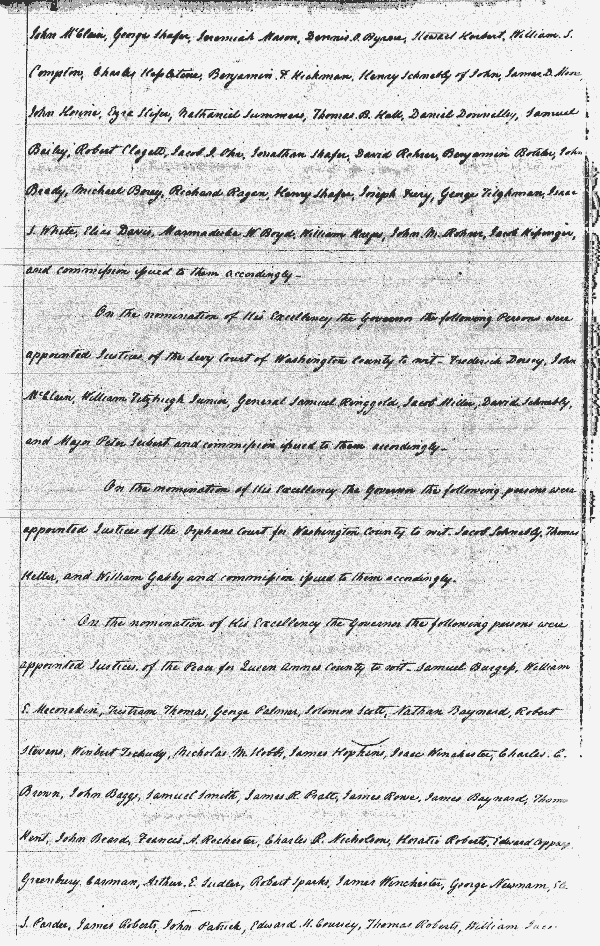 John McClain, George Shafer, Jeremiah Mason, Dennis A. Byrne, Howart Herbert, William S.
Compton, Charles Hesletine, Benjamin F. Hickman, Henry Schnebly of John, James D. Moore
John Horine, Ezra Slifer, Nathaniel Summers, Thomas B. Hall, Daniel Donnelly, Samuel
Bailey, Robert Clagett, Jacob I. Ohr, Jonathan Shafer, David Rohrer, Benjamin Boteler, John
Brady, Michael Bovey, Richard Ragan, Henry Shafer, Joseph Fiery, George Tilghman, Isaac
S. White, Elias Davis, Marmaduke W. Boyd, William Heyser, John M. Rohrer, Jacob Kessinger,
and commission issued to them accordingly-
On the nomination of His Excellency the Governor the following Persons were
appointed Justices of the Levy Court of Washington County to wit- Frederick Dorsey, John
McClain, William Fitzhugh Junior, General Samuel Ringgold, Jacob Miller, David Schnebly,
and Major Peter Seibert and commission issued to them accordingly.
On the nomination of His Excellency the Governor the following persons were
appointed Justices of the Orphans Court for Washington County to wit. Jacob Schnebly, Thomas
Keller, and William Gabby and commission issued to them accordingly.
On the nomination of His Excellency the Governor the following persons were
appointed Justices of the Peace for Queen Annes County to wit- Samuel Burgess, William
E. Meconekin, Tristram Thomas, George Palmer, Solomon Scott, Nathan Baynard, Robert
Stevens, Winbert Tschudy, Nicholas M. Hobbs, James Hopkins, Isaac Winchester, Charles C.
Brown, John Baggs, Samuel Smith, James R. Pratt, James Rowe, James Baynard, Thomas
Kent, John Beard, Francis A. Rochester, Charles R. Nicholson, Horatio Roberts, Edward Coppage,
Greenbury Carman, Arthur E. Sudler, Robert Sparks, James Winchester, George Newnam,
S. Pardee, James Roberts, John Patrick, Edward H. Coursey, Thomas Roberts, William